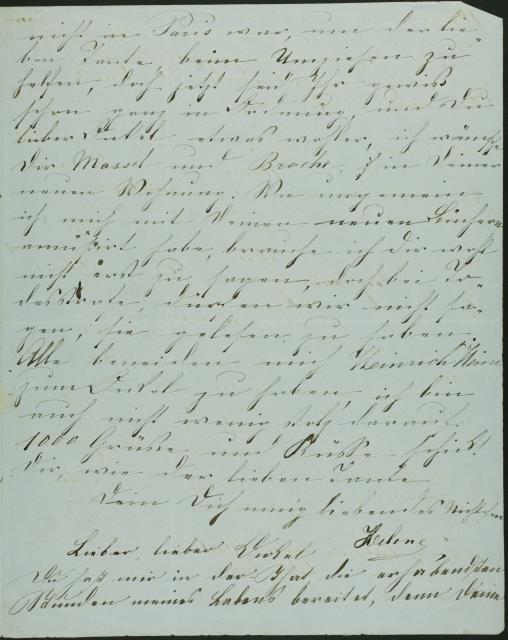 nicht in Paris war, um der lie-
ben Tante, beim Umziehen zu
helfen, doch jetzt seid Ihr gewiss
schon ganz in Ordnung, und Du
lieber Onkel etwas wohler, ich wünsche
Dir Massel und Broche, in Deiner
neuen Wohnung. Wie ungemein
ich mich mit Deinen neuen Büchern
amüsirt habe, brauche ich Dir wohl
nicht erst zu sagen, doch bei To-
desstrafe, dürfen wir nicht sa-
gen, sie gelesen zu haben.
Alle beneiden mich Heinrich Heine
zum Onkel zu haben, ich bin
auch nicht wenig stolz darauf.
1000 Grüsse und Küsse schickt
Dir, wie der lieben Tante
Dein Dich innig liebendes Nichtchen
Helene
Lieber, lieber Onkel
Du hast mir in der That, die erhabendsten
Stunden meines Lebens bereitet, denn Deine